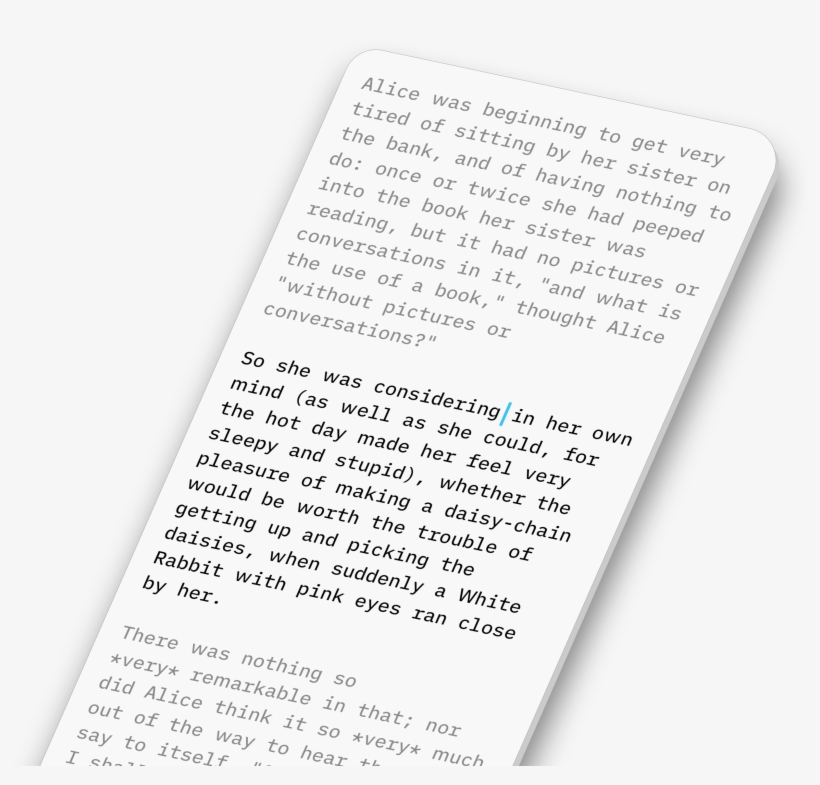 Alice was beginning to get very
tired of sitting by her sister on
the bank, and of having nothing to
do: once or twice she had peeped
into the book her sister was
reading, but it had no pictures or
conversations in it, "and what is
the use of a book," thought Alice
"without pictures or
conversations?"
So she was considering in her own
mind (as well as she could, for
the hot day made her feel very
sleepy and stupid), whether the
pleasure of making a daisy-chain
would be worth the trouble of
getting up and picking the
daisies, when suddenly a White
Rabbit with pink eyes ran close
by her.
There was nothing so
*very* remarkable in that; nor
did Alice think it so *very* much
out of the way to hear
say to itself,
I